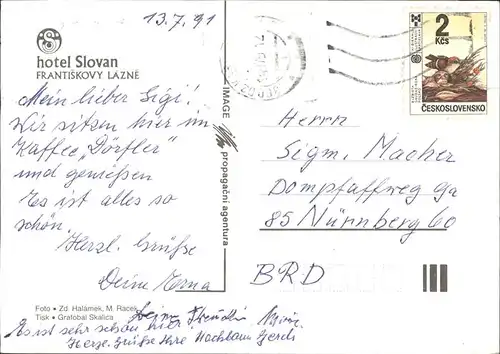 13.7.91
hotel Slovan
FRANTIŠKOVY LÁZNĚ
Mein lieber Sigi!
Wir sitzen hier im
Kaffee „Dörfler"
und genießen
Es ist alles so
schön.
Herzl. Grüße
Deine Erna
Foto • Zd. Halámek, M. Racek
Tisk • Grafobal Skalica
Es ist sehr schön hier!
Herzl. Grüße Ihre Nachbarn Gerdi
IMAGE propagační agentura
2
Kčs
ČESKOSLOVENSKO
Herrn
Sigm. Macher
Dompfaffweg 9a
85 Nürnberg 60
BRD